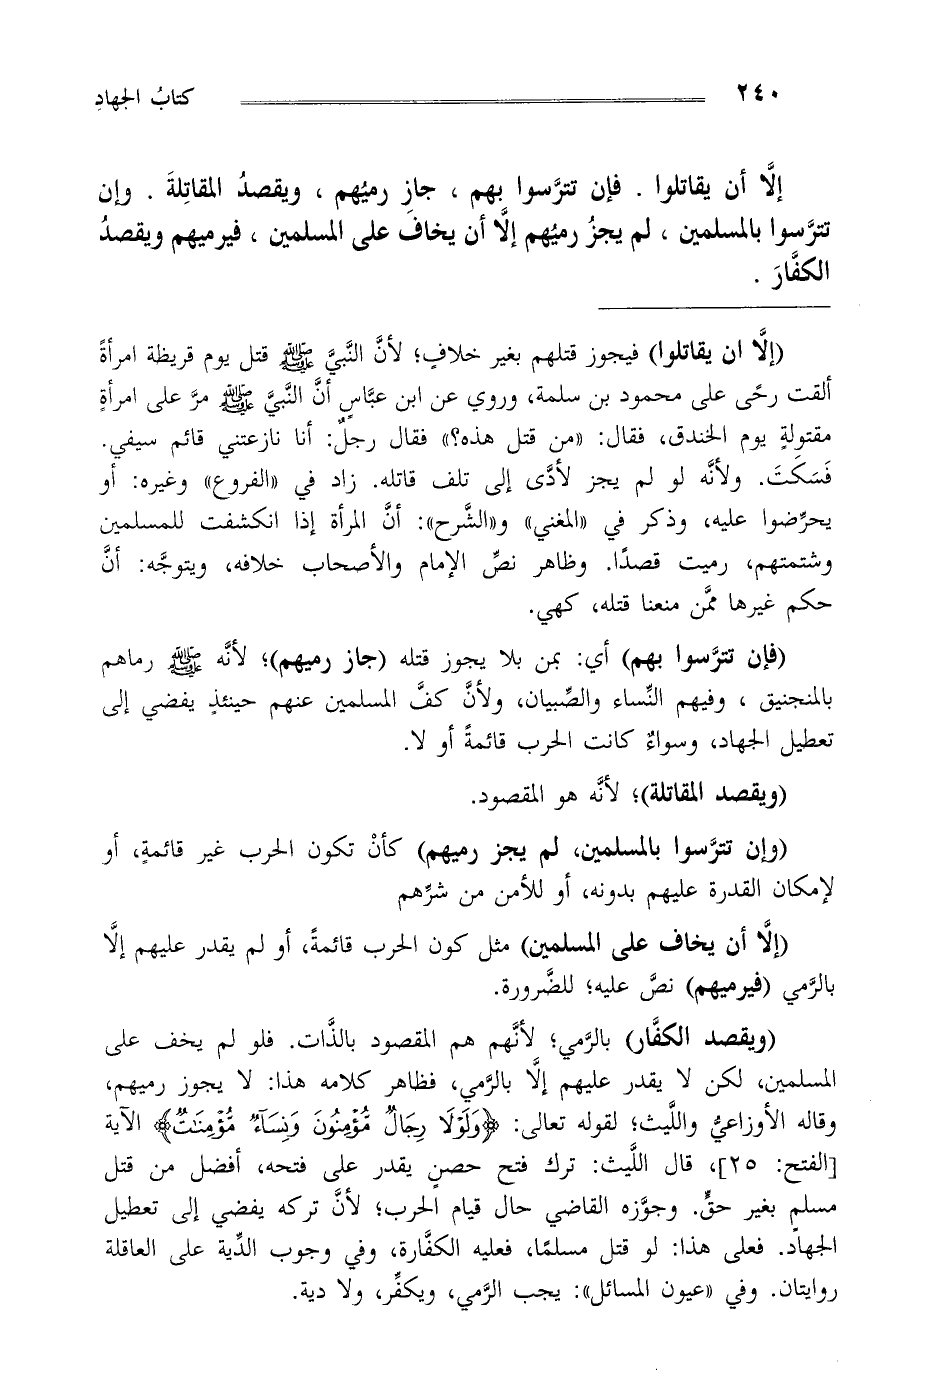 ٢٤٠ كتابُ الجهادِ
إلَّا أن يقاتلوا . فإن تترَّسوا بهم ، جازِ رميُهم ، ويقصدُ المقاتِلةَ . وإن
تترَّسوا بالمسلمين ، لم يجزُ رميُهم إلَّا أن يخافَ على المسلمين ، فيرميهم ويقصدُ
الكفَّارَ .
(إلَّا ان يقاتلوا) فيجوز قتلهم بغير خلافٍ؛ لأنَّ النَّبيَّ ﷺ قتل يوم قريظة امرأةً
ألقت رحًى على محمود بن سلمة، وروي عن ابن عبَّاسٍ أنَّ النَّبيَّ ﷺ مرَّ على امرأةٍ
مقتولةٍ يوم الخندق، فقال: «من قتل هذه؟» فقال رجلٌ: أنا نازعتني قائم سيفي.
فَسَكَتَ. ولأنَّه لو لم يجز لأدَّى إلى تلف قاتله. زاد في «الفروع» وغيره: أو
يحرِّضوا عليه، وذكر في «المغني» و«الشَّرح»: أنَّ المرأة إذا انكشفت للمسلمين
وشتمتهم، رميت قصدًا. وظاهر نصِّ الإمام والأصحاب خلافه، ويتوجَّه: أنَّ
حكم غيرها ممَّن منعنا قتله، كهي.
(فإن تترَّسوا بهم) أي: بمن بلا يجوز قتله (جاز رميهم)؛ لأنَّه ﷺ رماهم
بالمنجنيق ، وفيهم النِّساء والصِّبيان، ولأنَّ كفَّ المسلمين عنهم حينئذٍ يفضي إلى
تعطيل الجهاد، وسواءٌ كانت الحرب قائمةً أو لا.
(ويقصد المقاتلة)؛ لأنَّه هو المقصود.
(وإن تترَّسوا بالمسلمين، لم يجز رميهم) كأنْ تكون الحرب غير قائمةٍ، أو
لإمكان القدرة عليهم بدونه، أو للأمن من شرِّهم
(إلَّا أن يخاف على المسلمين) مثل كون الحرب قائمةً، أو لم يقدر عليهم إلَّا
بالرَّمي (فيرميهم) نصَّ عليه؛ للضَّرورة.
(ويقصد الكفَّار) بالرَّمي؛ لأنَّهم هم المقصود بالذَّات. فلو لم يخف على
المسلمين، لكن لا يقدر عليهم إلَّا بالرَّمي، فظاهر كلامه هذا: لا يجوز رميهم،
وقاله الأوزاعيُّ واللَّيث؛ لقوله تعالى: ﴿وَلَوۡلَا رِجَالٌ مُّؤۡمِنُونَ وَنِسَآءٌ مُّؤۡمِنَٰتٌ﴾ الآية
[الفتح: ٢٥]، قال اللَّيث: ترك فتح حصنٍ يقدر على فتحه، أفضل من قتل
مسلمٍ بغير حقٍّ. وجوَّزه القاضي حال قيام الحرب؛ لأنَّ تركه يفضي إلى تعطيل
الجهاد. فعلى هذا: لو قتل مسلمًا، فعليه الكفَّارة، وفي وجوب الدِّية على العاقلة
روايتان. وفي «عيون المسائل»: يجب الرَّمي، ويكفِّر، ولا دية.